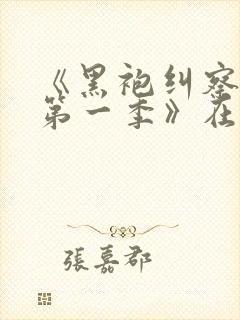 《黑袍纠察
第一季》在
張嘉郡